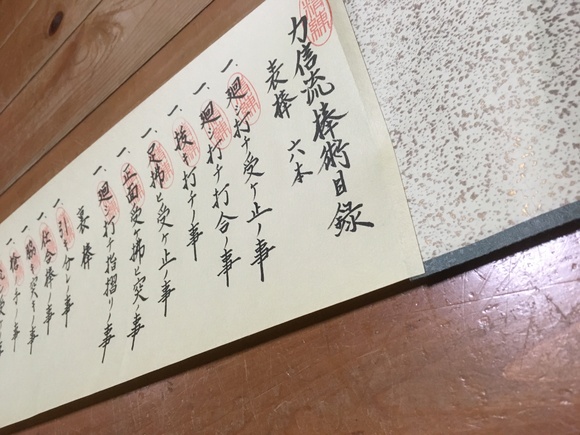 力信流棒術目録
表棒 六本
一、廻シ打チ受ケ止ノ事
一、廻シ打チ打合ノ事
一、抜キ打チノ事
一、足拂ヒ受ケ止ノ事
一、正面受ケ拂ヒ突ノ事
一、廻シ打チ指摺リノ事
裏棒
一、引キ分ケノ事
一、仕合棒ノ事
一、脇キ突キノ事